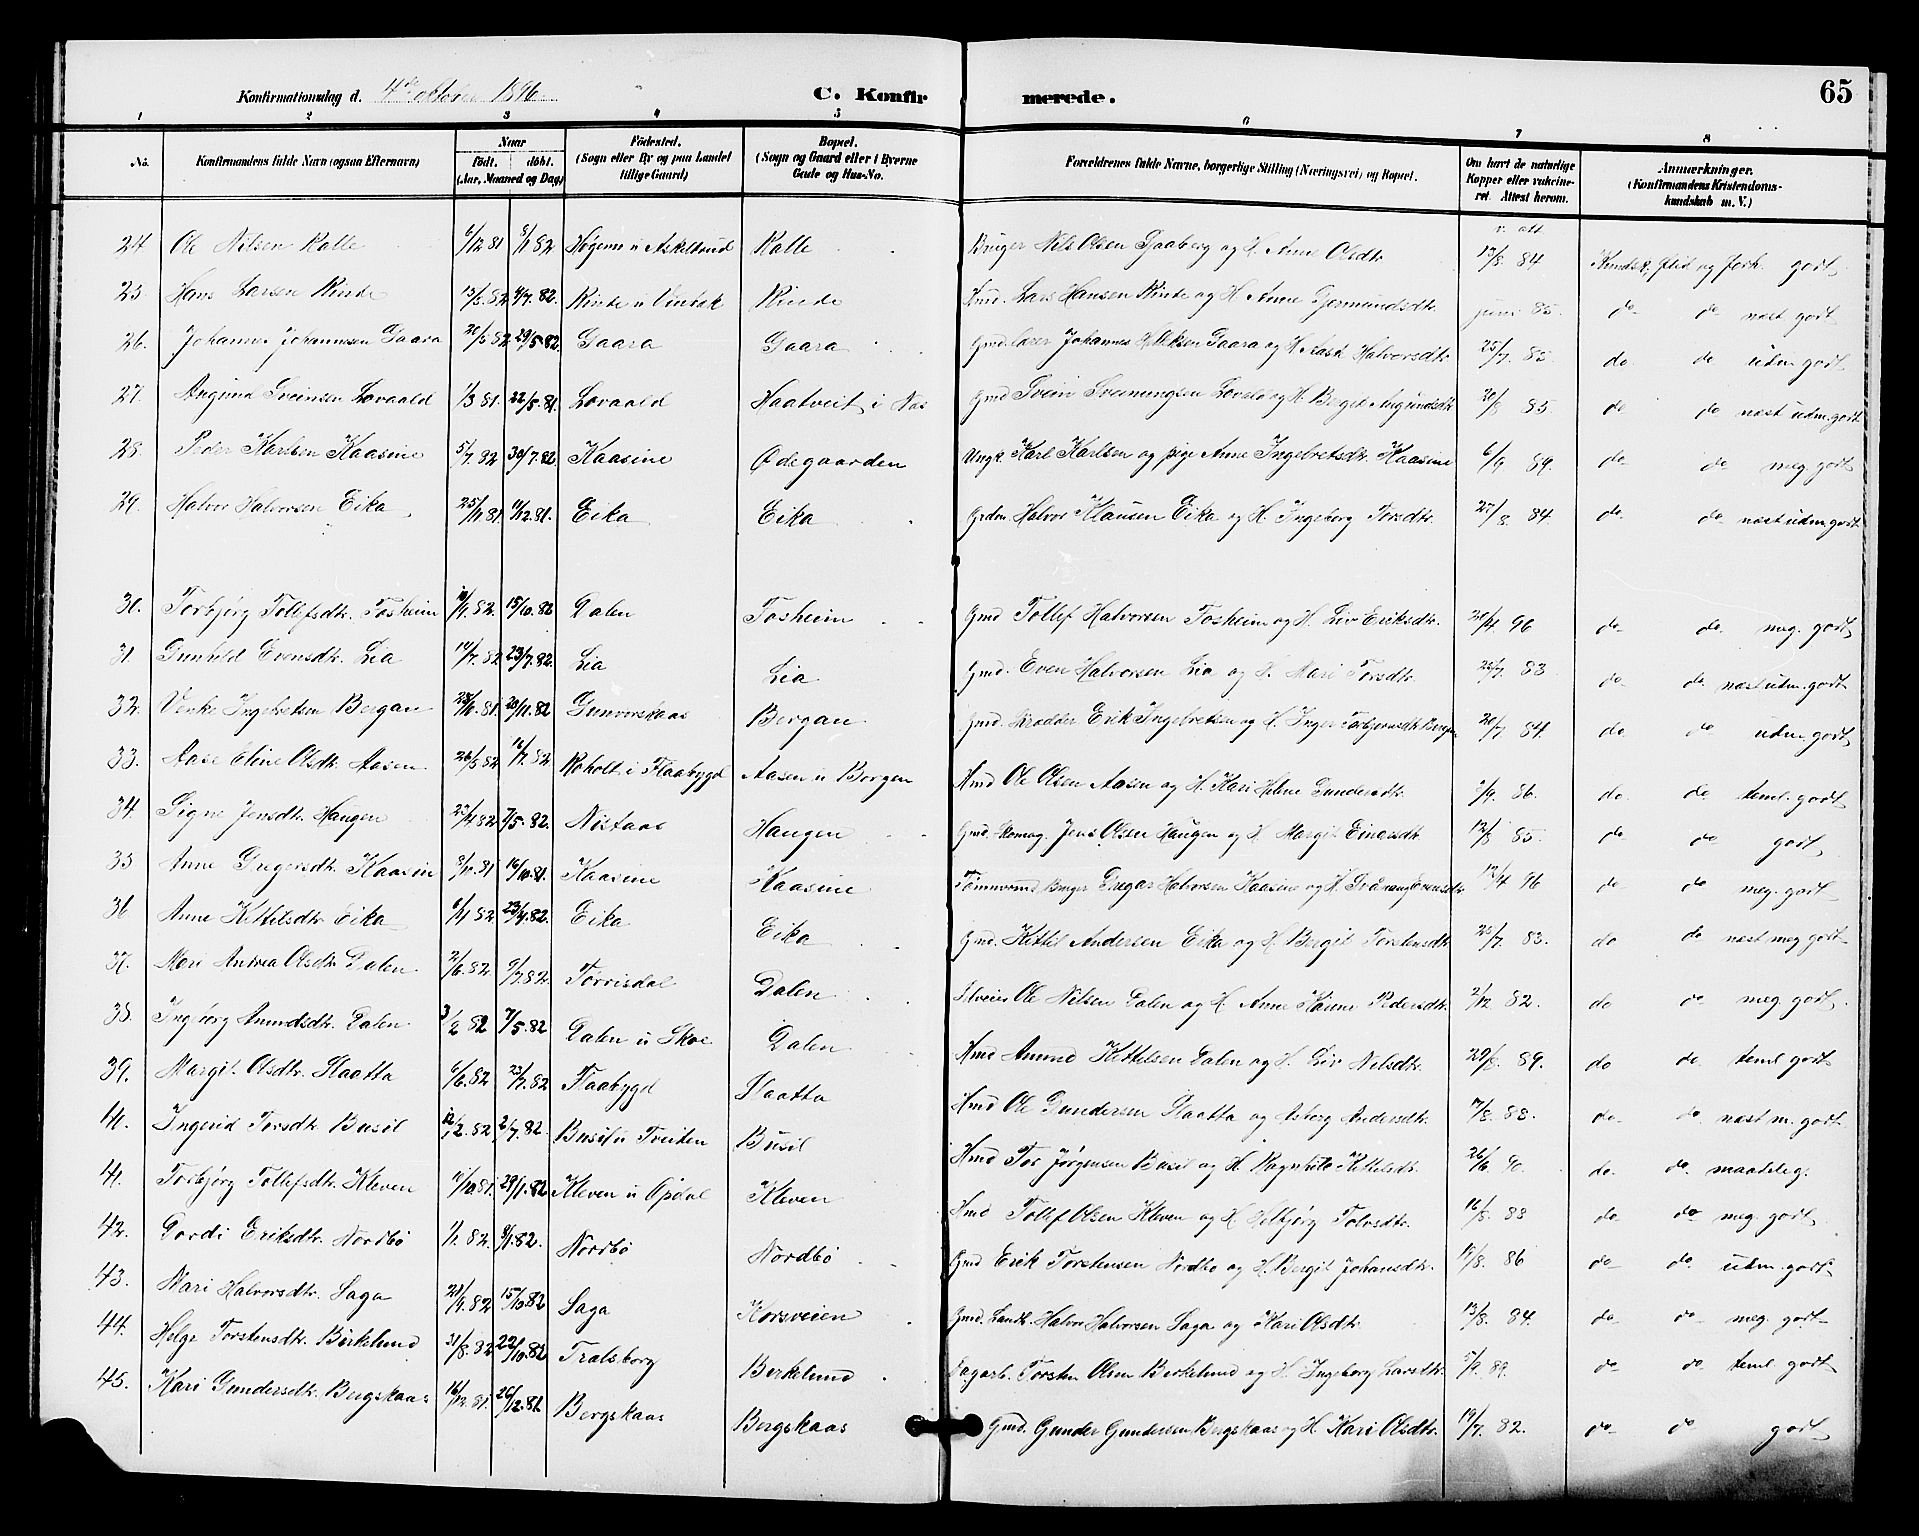 Konfirmationsdag d. 4de oktober 1896. C. Konfirmerede. 65
1 2 3 4 5 6 7 8
No. Konfirmandens fulde Navn (ogsaa Efternavn) Naar födt. döbt. (Aar, Maaned og Dag) Födested. (Sogn eller By og paa Landet tillige Gaard) Bopæl. (Sogn og Gaard eller i Byerne Gade og Hus-No. Forældrenes fulde Navne, borgerlige Stilling (Næringsvei) og Bopæl. Om havt de naturlige Kopper eller vakcineret. Attest herom. Anmærkninger. (Konfirmandens Kristendomskundskab m. V.)
v. att.
24 Ole Nilsen Kalle 6/12 81 8/1 82 Høgems u Askeltrud Kalle Bruger Nils Olsen Gaaberg og H. Anne Olsdtr. 13/8 84 Kundsk, flid og forh. godt
25. Hans Larsen Rinde 15/5.82 9/7.82. Rinde u Vintak Rinde Hmd. Lars Hansen Rinde og H. Anne Gjermundsdtr. juni 85. do do næst godt
26. Johannes Johannesen Gaara 20/5 82 29/5.82. Gaara Gaara Gmd. Johannes Gaara og H. Aase Halvorsdtr. 25/7. 85. do do udm. godt
27. Augund Sveinsen Lovaald 1/3 81. 22/5.81. Lovaald Haatveit i Næs Gmd Svein Sveinungsen og H. Bergit Augundsdtr 20/8 85 do do næst udm. godt
28. Peder Karlsen Kaasine 5/7.82 30/7.82 Kaasine Ødegaarden Ungk. Karl Karlsen og pige Anne Ingebretsdtr. Kaasine 6/9 89. do do meg. godt
29. Halvor Halvorsen Eika 25/11 81. 11/12.81. Eika Eika Grdm. Halvor Klausen Eika og H. Ingeborg Torsdtr. 25/8 84. do do næst udm. godt
30. Torbjørg Tollefsdtr. Tosheim 10/9.82. 15/10.82 Dalen Tosheim Gmd Tollef Halvorsen Tosheim og H. Liv Eriksdtr. 20/4. 96 do do meg. godt
31. Gunhild Evensdtr. Lia 14/7. 82 23/7.82. Lia Lia Gmd. Even Halvorsen Lia og H. Mari Torsdtr. 25/7 83 do do næst udm. godt
32. Venke Ingebretsen Bergan 28/11.81. 20/11.82 Gunvorskaas Bergan Gmd. Erik Ingebretsen og H. Inger Torbjørnsdtr. Bergan 20/7 84. do do udm. godt
33. Aase Eline Olsdtr. Aasen 26/5 82 16/7.82 Roholt i Flaabygd Aasen u Borgen Hmd Ole Olsen Aasen og H. Kari Helene Gundersdtr. 2/9. 86. do do teml. godt
34. Signe Jensdtr. Haugen 23/4.82. 7/5.82. Nistaas Haugen Gmd. Skomag. Jens Olsen Haugen og H. Margit Einarsdtr 12/8 85. do do godt
35 Anne Gregersdtr Kaasin 8/10.81 16/10.81. Kaasine Kaasine Tømmermd, Bruger Gregar Halvorsen Kaasine og H. Evensdtr. 13/4 96 do do meg. godt
36 Anne Kittilsdtr. Eika 6/4 82 23/4.82. Eika Eika Gmd. Kittil Andersen Eika og H. Bergit Torstensdtr. 25/7. 83. do do næst meg godt
37. Mari Andrea Olsdtr. Dalen 2/6.82. 9/7.82. Torrisdal Dalen Ole Nilsen Dalen og H. Anne Karine Pedersdtr. 2/12 82. do do meg. godt
38. Ingbjørg Amundsdtr. Dalen 3/2 82 7/5.82 Dalen u Skoe Dalen Hmd Amund Kittelsen Dalen og H. Liv Nilsdtr. 29/6. 89. do do teml godt
39. Margit Olsdtr. Slaatta 6/6.82. 23/7.82 Flaabygd Slaatta Hmd Ole Gundersen Slaatta og Asborg Andersdtr. 17/8. 83. do do næst m. godt
40. Ingerid Torsdtr. Busöl 12/2.82 2/7.82. Busöl u Treiten Busöl Hmd Tor Jørgensen Busöl og H. Ragnhild Kittilsdtr. 26/6 90. do do maadelig.
41. Torbjørg Tollefsdtr. Kleven 11/10.81. 29/1.82 Kleven u Opdal Kleven Hmd Tollef Olsen Kleven og H. Helbjørg Tolvsdtr. 16/8. 83 do do meg. godt
42. Gordi Eriksdtr. Nordbø 1/1. 82. 8/1.82. Nordbø Nordbø Gmd Erik Torstensen Nordbø og H. Bergit Johansdtr. 18/8. 86 do do udm. godt
43. Mari Halvorsdtr. Saga 21/9.82 15/10.82 Saga Korsveien Gmd. Landh. Halvor Halvorsen Saga og Kari Olsdtr. 13/8. 84. do do meg. godt
44. Helge Torstensdtr. Birkelund 31/8.82 22/10.82 Tralsborg Birkelund Dagarb. Torsten Olsen Birkelund og H. Ingeborg Larsdtr. 5/9. 89. do do teml. godt
45. Kari Gundersdtr. Bergskaas 16/12.81. 26/12.81 Bergskaas Bergskaas Gmd. Gunder Gundersen Bergskaas og H. Kari Olsdtr. 19/7. 82. do do godt